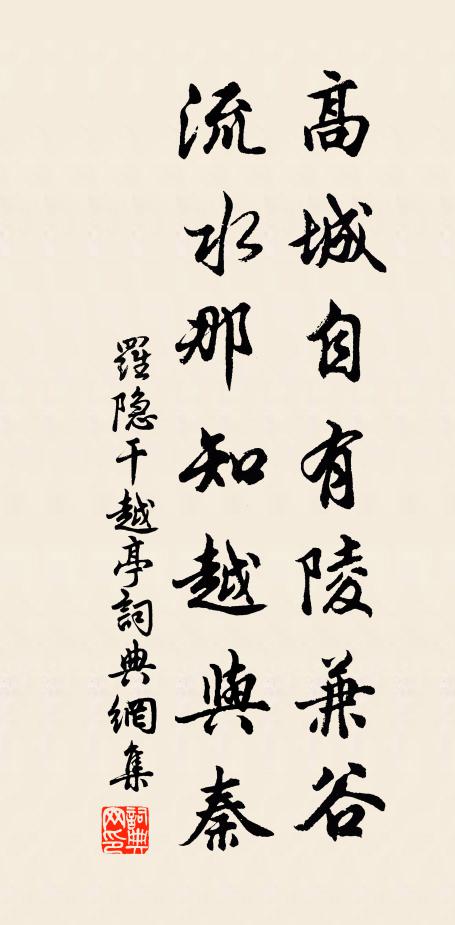 高城自有陵兼谷
流水那知越與秦
羅隐干越亭詞典網集
詞典网印